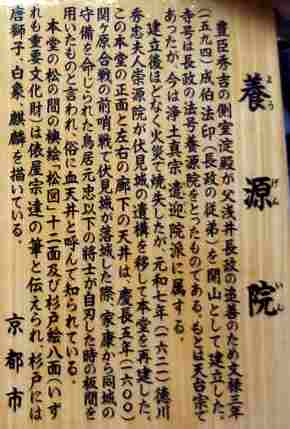 養源院
ようげんいん
豊臣秀吉の側室淀殿が父浅井長政の追善のため文禄三年
(一五九四)成伯法印(長政の従弟)を開山として建立した。
寺号は長政の法号養源院をとったものである。もとは天台宗で
あったが、今は浄土真宗遣迎院派に属する。
建立後ほどなく火災で焼失したが、元和七年(一六二一)徳川
秀忠夫人崇源院が伏見城の遺構を移して本堂を再建した。
この本堂の正面と左右の廊下の天井は、慶長五年(一六〇〇)
関ヶ原合戦の前哨戦で伏見城が落城した際、家康から同城の
守備を命じられた鳥居元忠以下の将士が自刃した時の板間を
用いたものと言われ、俗に血天井と呼んで知られている。
本堂の松の間の襖絵松図十二面及び杉戸絵八面(いず
れも重要文化財)は俵屋宗達の筆と伝えられ、杉戸には
唐獅子、白象、麒麟を描いている。
京都市